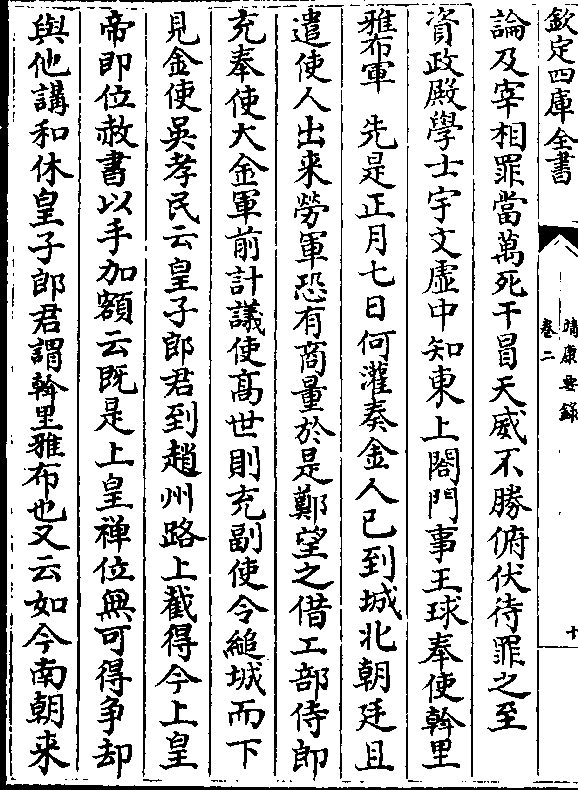 欽定四庫全書
靖康要錄
卷二
十
論及宰相罪當萬死干冒天威不勝俯伏待罪之至
資政殿學士宇文虛中知東上閤門事王球奉使斡里
雅布軍　先是正月七日何灌奏金人已到城北朝廷且
遣使人出来勞軍恐有商量於是鄭望之借工部侍郎
充奉使大金軍前計議使高世則充副使令縋城而下
見金使吳孝民云皇子郎君到趙州路上截得今上皇
帝即位赦書以手加額云既是上皇禅位無可得争却
與他講和休皇子郎君謂斡里雅布也又云如今南朝来